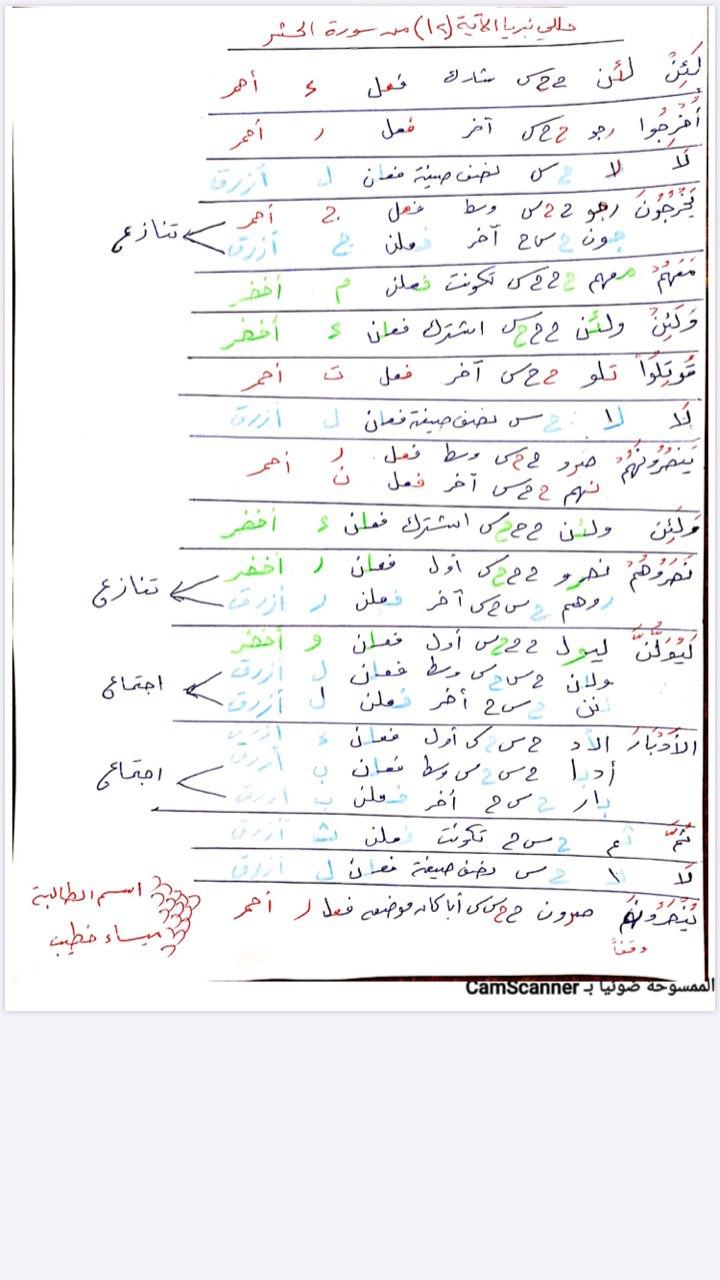 حللي نبريا الآية (١٢) من سورة الحشر
لَئِنْ لئن ححس شارك فعل ء أحمر
أُخْرِجُوا رجو حححس آخر فعل ر أحمر
لَا لا حس نصف صيغة فعلن ل أزرق
يَخْرُجُونَ رجو حححس وسط فعل ج أحمر
جون ححسح آخر فعلن ج أزرق
تنازع
مَعَهُمْ معهم ححححس تكونت فعلن م أخضر
وَلَئِنْ ولئن حححس اشترك فعلن ء أخضر
قُوتِلُوا تلو ححس آخر فعل ت أحمر
لَا لا حس نصف صيغة فعلن ل أزرق
يَنْصُرُونَهُمْ صرو ححس وسط فعل ر أحمر
نهم ححس آخر فعل ن
وَلَئِن ولئن حححس اشترك فعلن ء أخضر
نَصَرُوهُمْ نصرو حححس أول فعلن ر أخضر
روهم حسحس آخر فعلن ر أزرق
تنازع
لَيُوَلُّنَّ ليول حححس أول فعلن و أخضر
ولان حسحس وسط فعلن ل أزرق
لنن حسح أخر فعلن ل أزرق
اجتماع
الأَدْبَارَ الأد حسحس أول فعلن ء أزرق
أدبا حسحس وسط فعلن ب أزرق
بار حسح أخر فعلن ب أزرق
اجتماع
ثُمَّ ثم حسح تكونت فعلن ث أزرق
لَا لا حس نصف صيغة فعلن ل أزرق
يُنْصَرُونَ صرون ححسس أيا كان موضعه فعل ر أحمر
وقفاً
اسم الطالبة
ميساء خطيب
الممسوحة ضوئيا بـ CamScanner